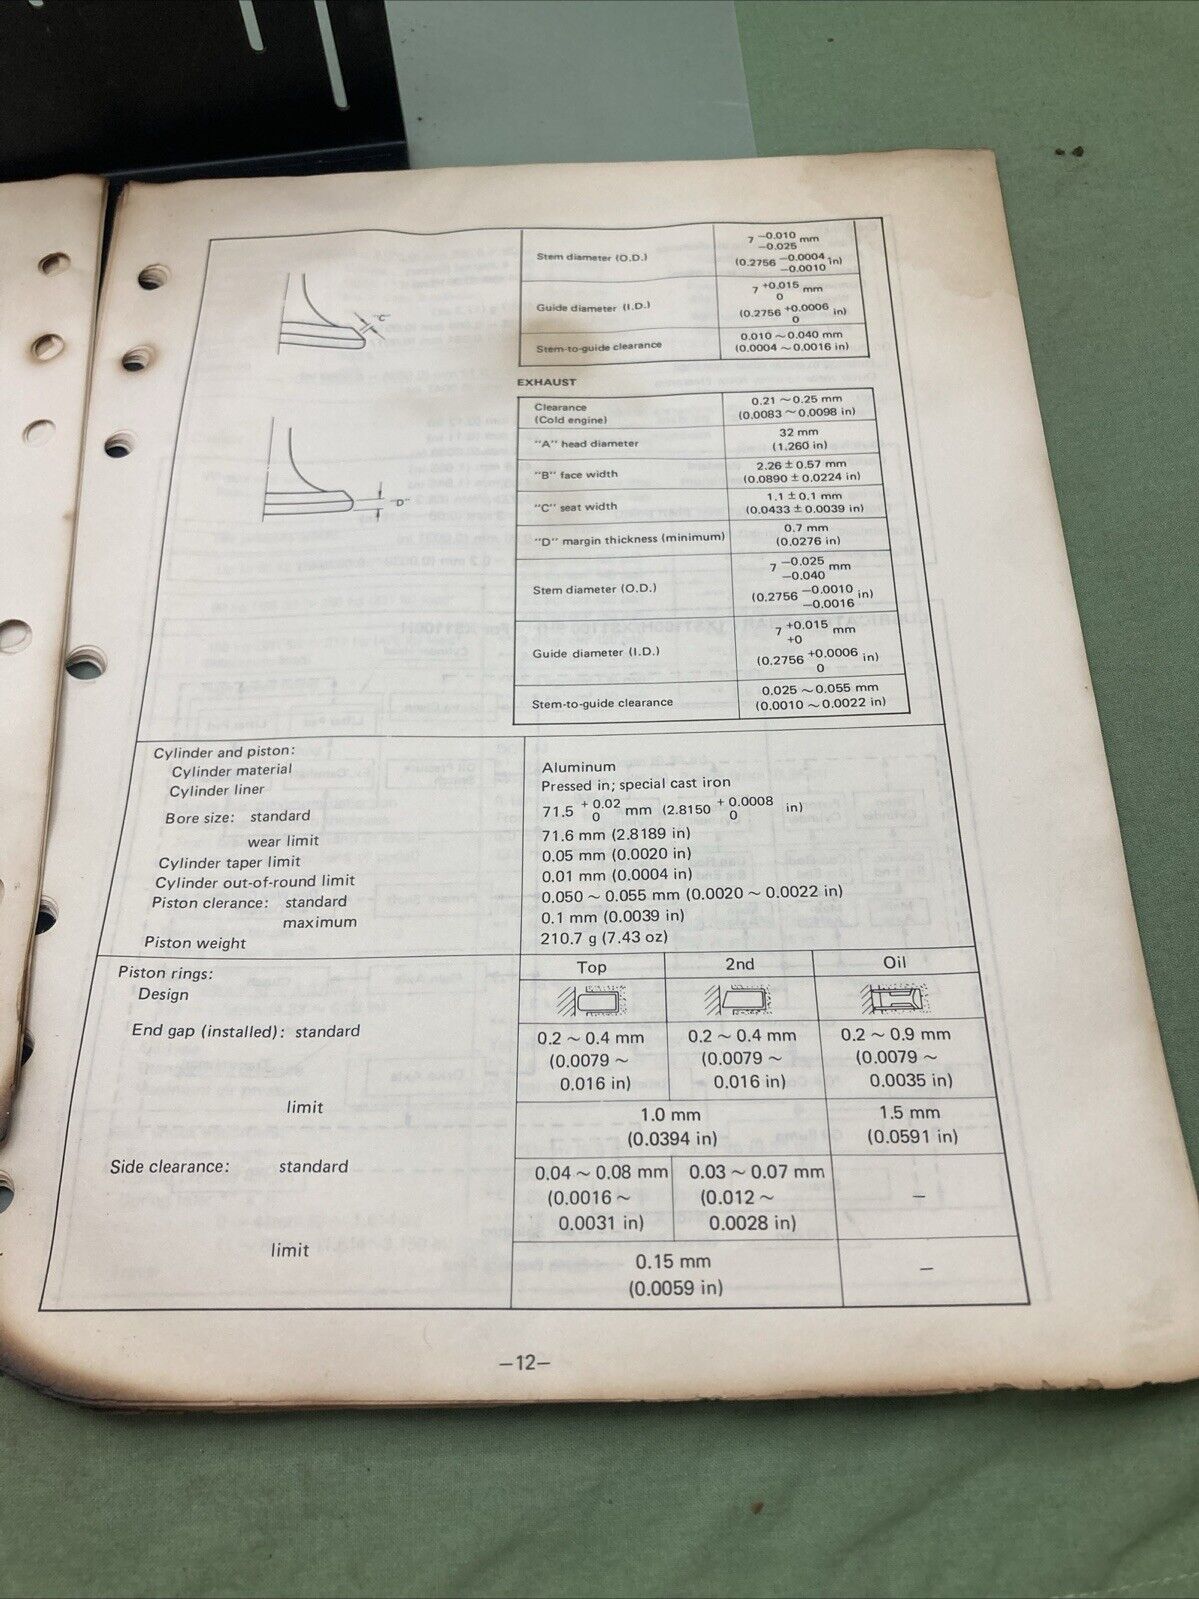 "C"
Stem diameter (O.D.) 7 −0.010 −0.025 mm
(0.2756 −0.0004 −0.0010 in)
Guide diameter (I.D.) 7 +0.015 0 mm
(0.2756 +0.0006 0 in)
Stem-to-guide clearance 0.010 ~ 0.040 mm
(0.0004 ~ 0.0016 in)
EXHAUST
Clearance 0.21 ~ 0.25 mm
(Cold engine) (0.0083 ~ 0.0098 in)
"A" head diameter 32 mm
(1.260 in)
"B" face width 2.26 ± 0.57 mm
(0.0890 ± 0.0224 in)
"C" seat width 1.1 ± 0.1 mm
(0.0433 ± 0.0039 in)
"D"
"D" margin thickness (minimum) 0.7 mm
(0.0276 in)
Stem diameter (O.D.) 7 −0.025 −0.040 mm
(0.2756 −0.0010 −0.0016 in)
Guide diameter (I.D.) 7 +0.015 +0 mm
(0.2756 +0.0006 0 in)
Stem-to-guide clearance 0.025 ~ 0.055 mm
(0.0010 ~ 0.0022 in)
Cylinder and piston:
Cylinder material Aluminum
Cylinder liner Pressed in; special cast iron
Bore size: standard 71.5 + 0.02 0 mm (2.8150 + 0.0008 0 in)
wear limit 71.6 mm (2.8189 in)
Cylinder taper limit 0.05 mm (0.0020 in)
Cylinder out-of-round limit 0.01 mm (0.0004 in)
Piston clerance: standard 0.050 ~ 0.055 mm (0.0020 ~ 0.0022 in)
maximum 0.1 mm (0.0039 in)
Piston weight 210.7 g (7.43 oz)
Piston rings: Top 2nd Oil
Design
End gap (installed): standard 0.2 ~ 0.4 mm 0.2 ~ 0.4 mm 0.2 ~ 0.9 mm
(0.0079 ~ (0.0079 ~ (0.0079 ~
0.016 in) 0.016 in) 0.0035 in)
limit 1.0 mm 1.5 mm
(0.0394 in) (0.0591 in)
Side clearance: standard 0.04 ~ 0.08 mm 0.03 ~ 0.07 mm –
(0.0016 ~ (0.012 ~
0.0031 in) 0.0028 in)
limit 0.15 mm –
(0.0059 in)
–12–